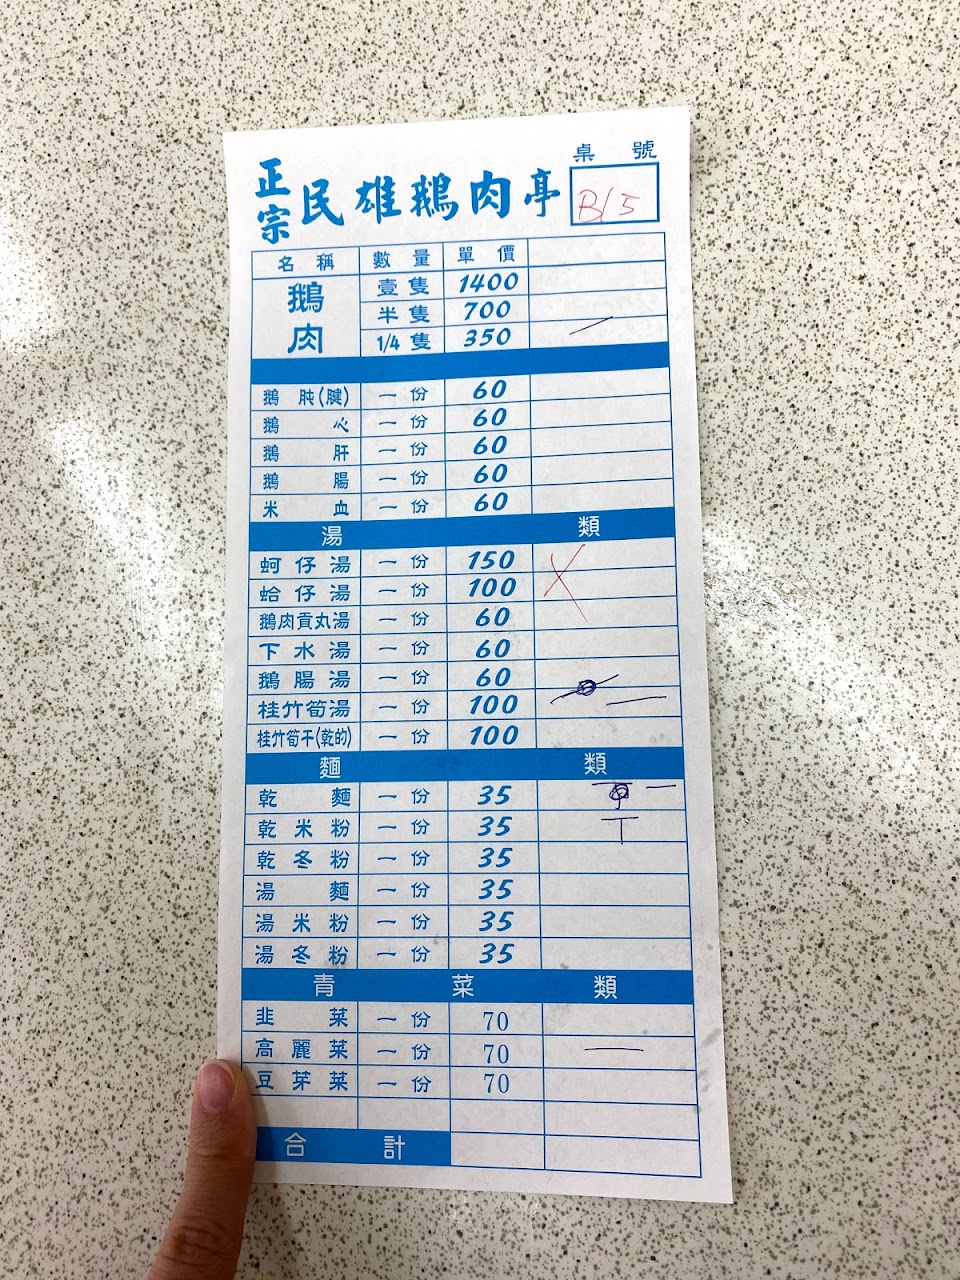 桌號
正宗民雄鵝肉亭
B15
名稱 數量 單價
鵝肉 壹隻 1400
半隻 700
1/4隻 350 一
鵝肫(腱) 一份 60
鵝心 一份 60
鵝肝 一份 60
鵝腸 一份 60
米血 一份 60
湯類
蚵仔湯 一份 150
蛤仔湯 一份 100
鵝肉貢丸湯 一份 60
下水湯 一份 60
鵝腸湯 一份 60
桂竹筍湯 一份 100 一
桂竹筍干(乾的) 一份 100
麵類
乾麵 一份 35 一
乾米粉 一份 35 丅
乾冬粉 一份 35
湯麵 一份 35
湯米粉 一份 35
湯冬粉 一份 35
青菜類
韭菜 一份 70
高麗菜 一份 70 一
豆芽菜 一份 70
合計